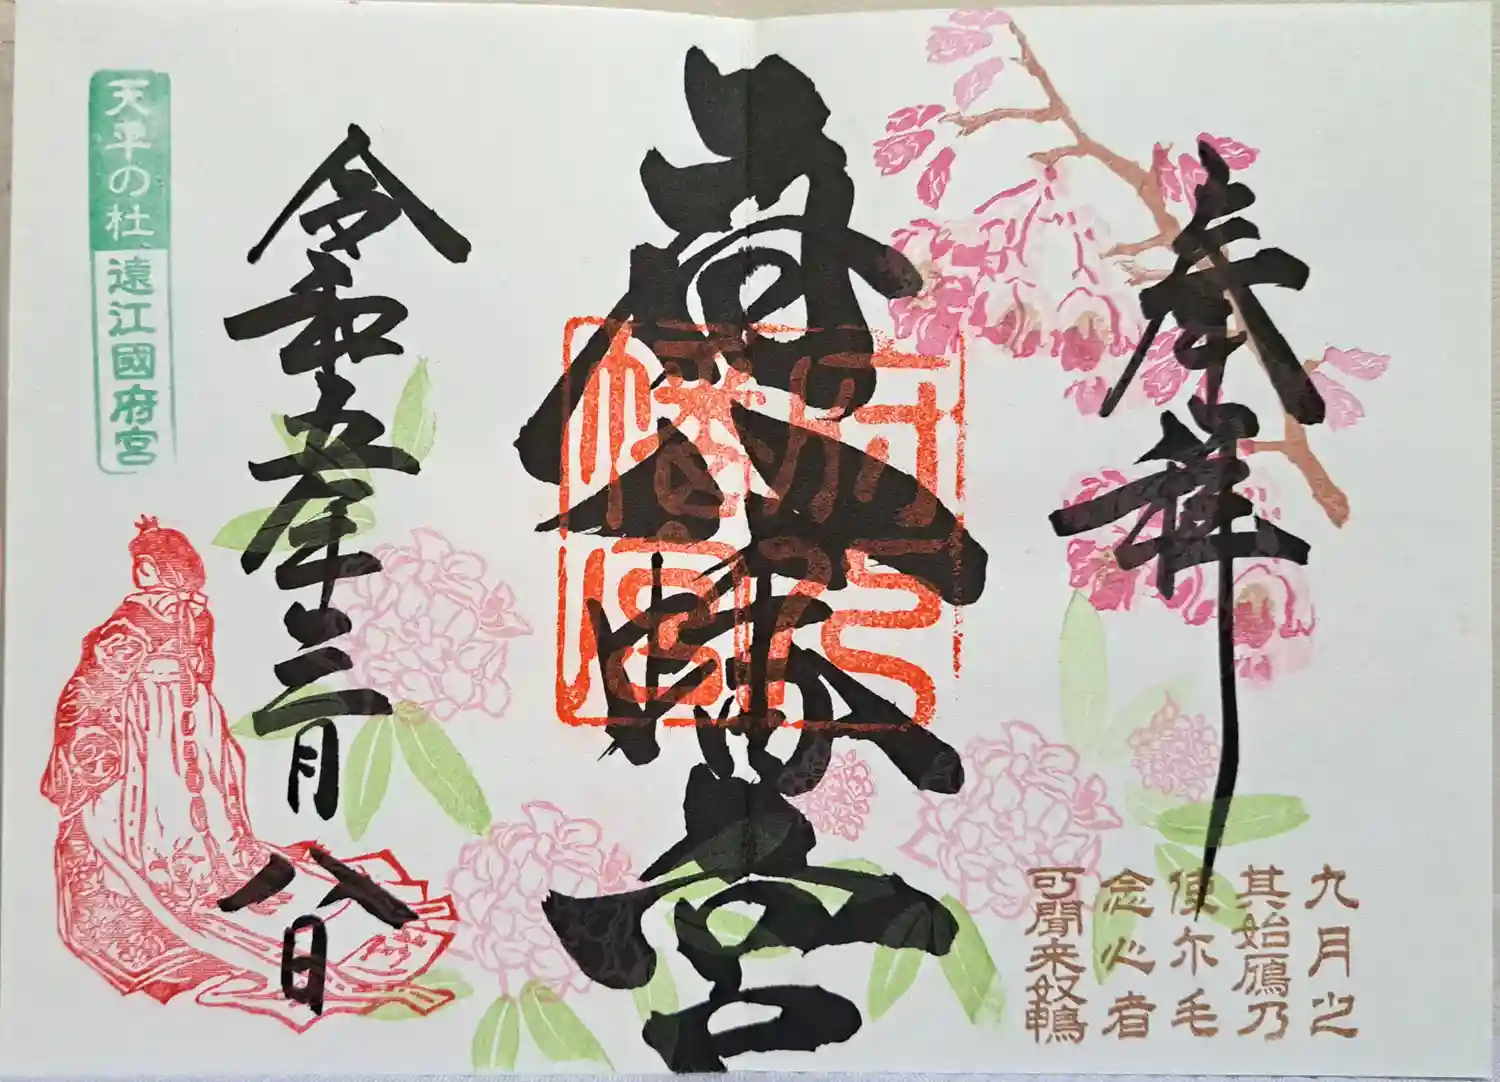 奉拝
府八幡宮
府八
幡宮
令和五年三月八日
天平の杜 遠江國府宮
九月之
其始鴈乃
使尓毛
念心者
可聞来奴鴨